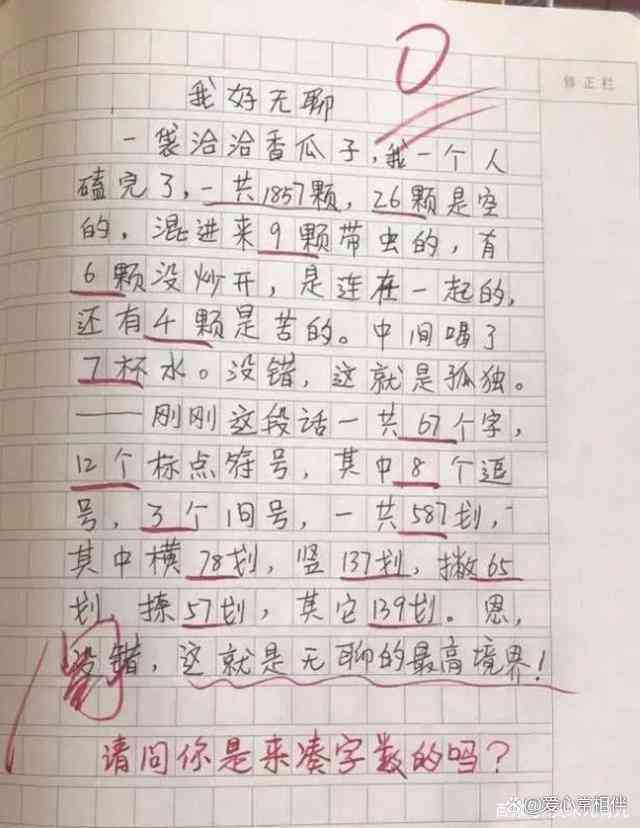 0
修正栏
我好无聊
一袋洽洽香瓜子,我一个人
磕完了,一共1857颗,26颗是空
的,混进来9颗带虫的,有
6颗没炒开,是连在一起的,
还有4颗是苦的。中间喝了
7杯水。没错,这就是孤独。
——刚刚这段话一共67个字,
12个标点符号,其中8个逗
号,3个句号,一共587划,
其中横78划,竖137划,撇65
划,捺57划,其它139划。恩,
没错,这就是无聊的最高境界!
请问你是来凑字数的吗?
@爱心常相伴